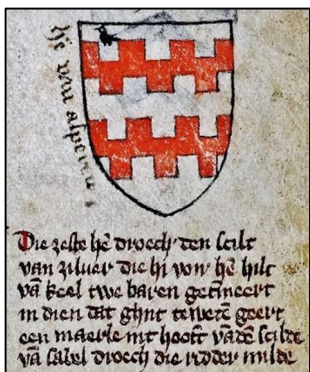 hē van asperen
Die zeste hē droech den scilt
van ziluer die hi vor hē hilt
vā keel twe baren getineert
in dien dat ghint te werē geert
een maerle int hooft vādē scilde
vā sabel droech die ridder milde